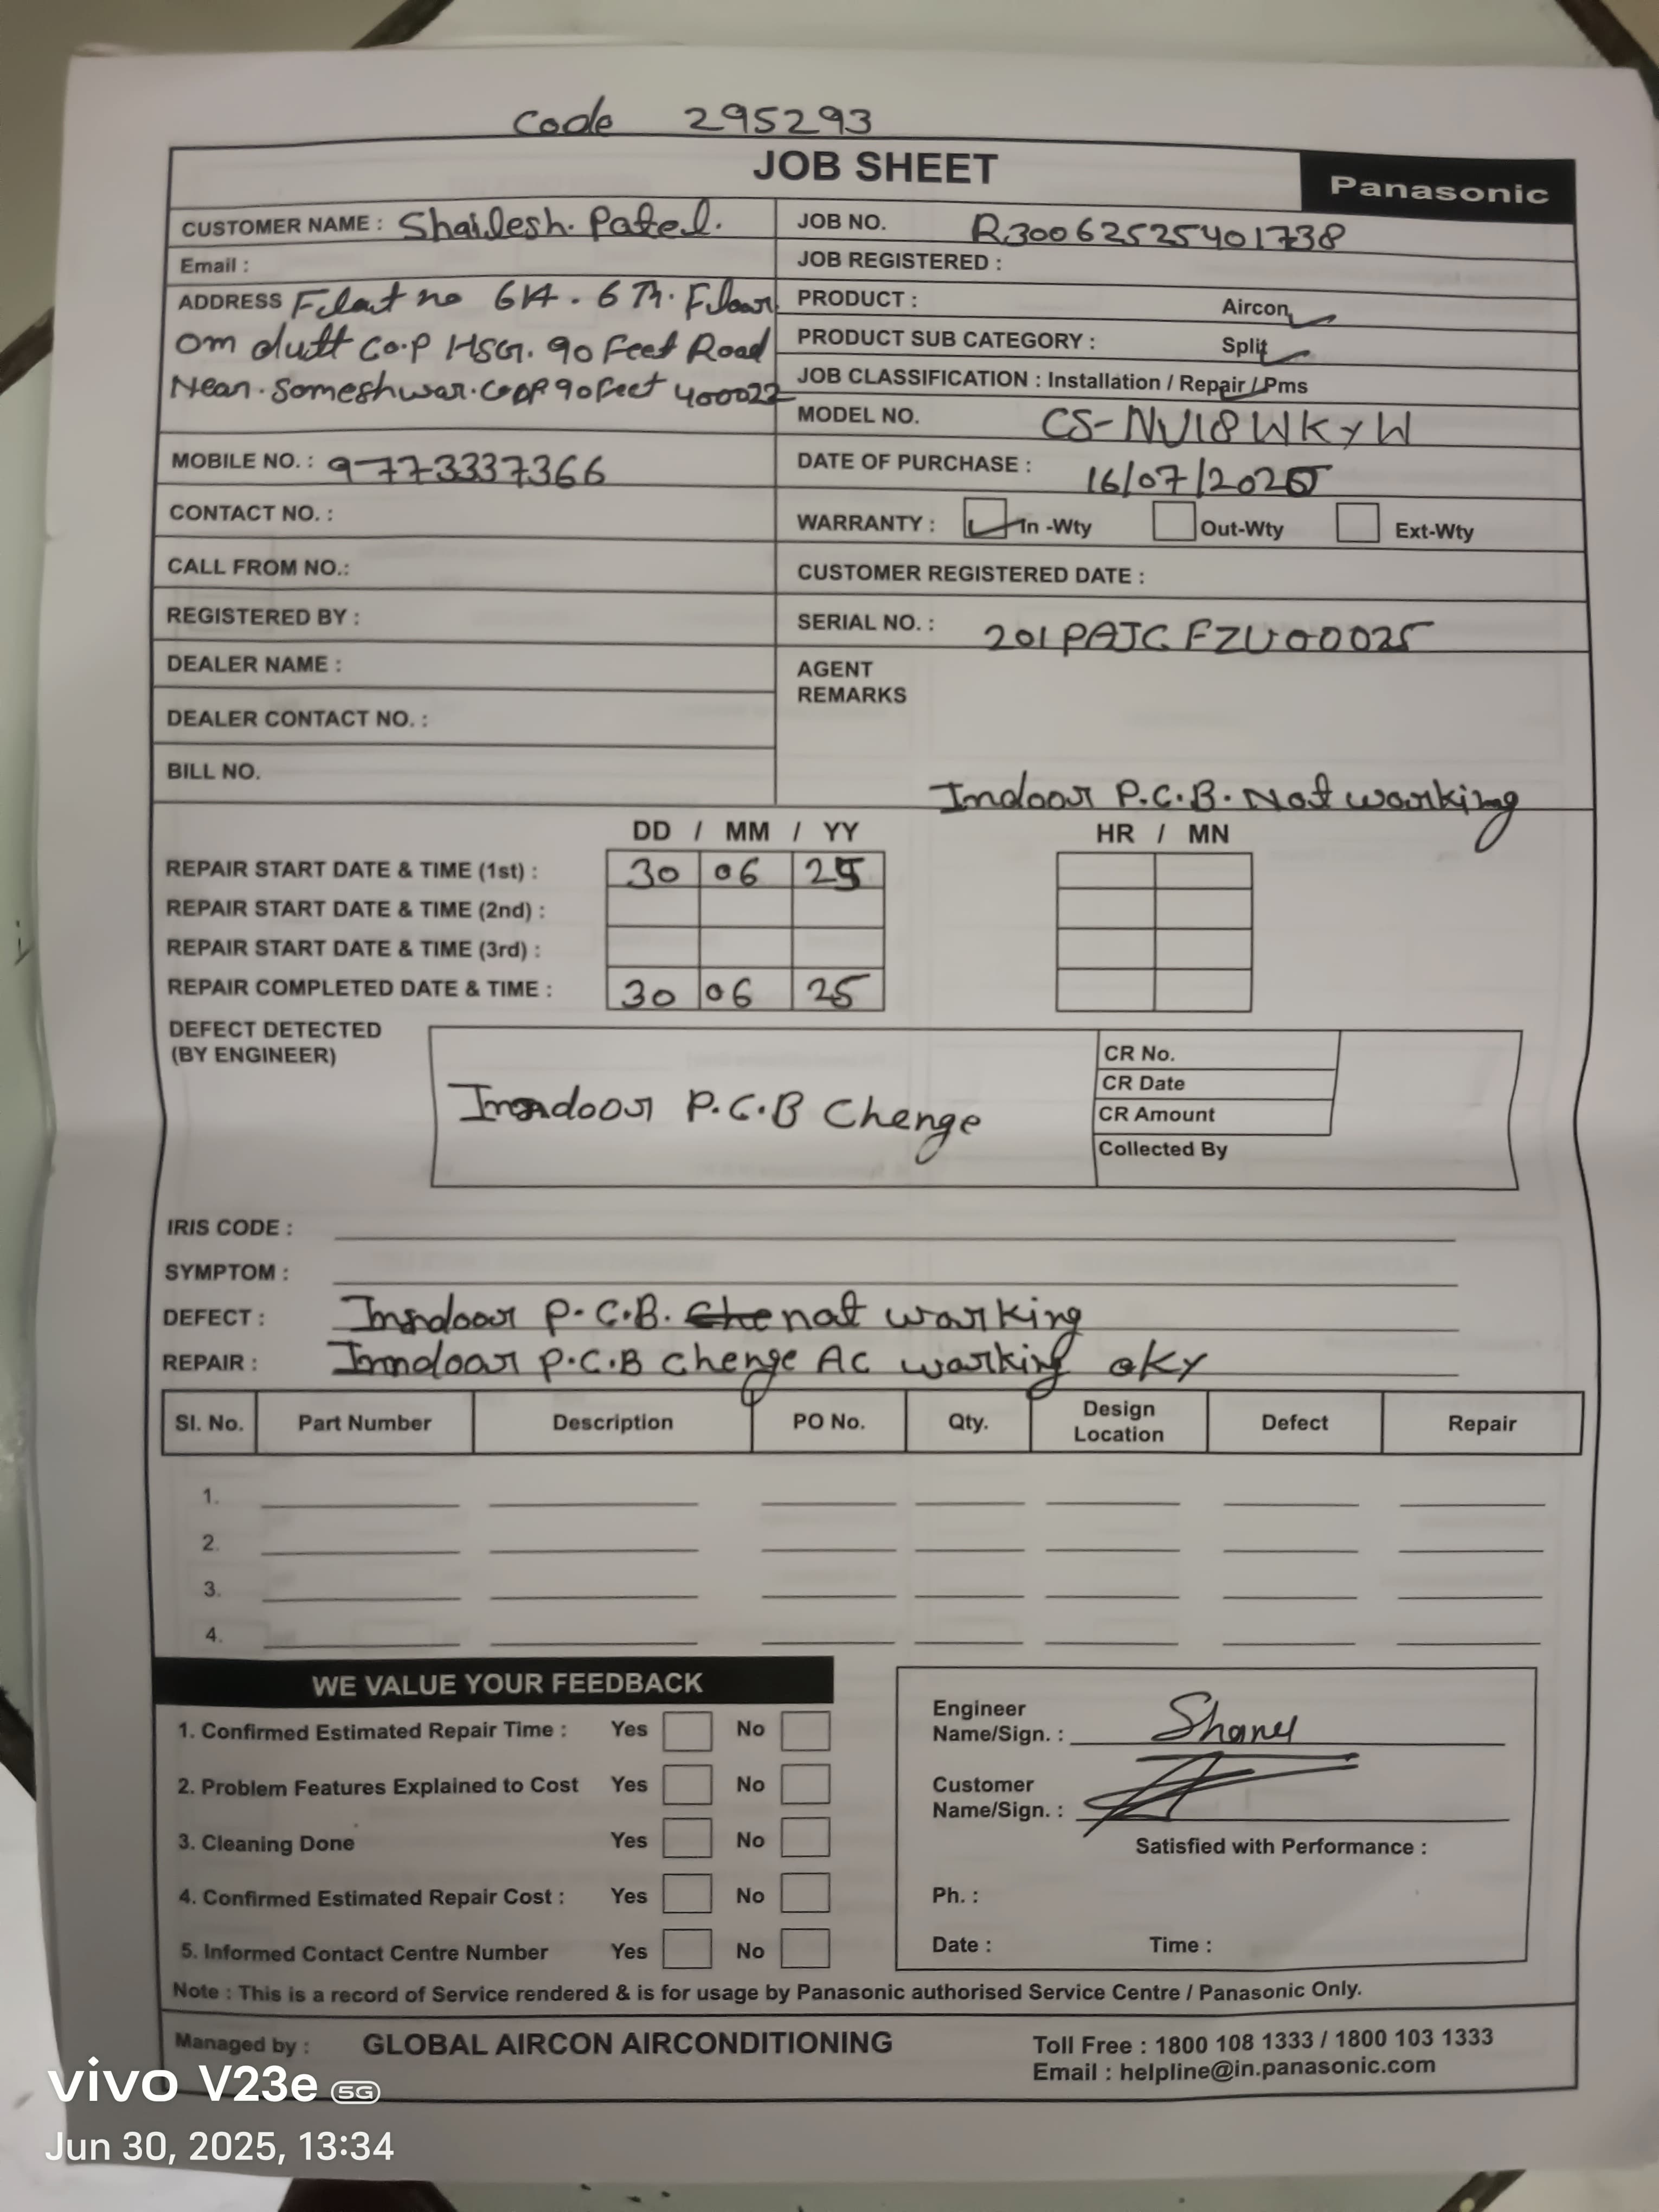 Code 295293
JOB SHEET
Panasonic
CUSTOMER NAME : Shailesh. Patel.
JOB NO. R30062525401738
Email :
JOB REGISTERED :
ADDRESS Flat no 61A. 6 Th. Floor
PRODUCT : Aircon
om dutt Co.P HSG. 90 Feet Road
PRODUCT SUB CATEGORY : Split
Near. Someshwar. Coop 90 Feet 400022
JOB CLASSIFICATION : Installation / Repair / Pms
MODEL NO. CS-NU18WKYW
MOBILE NO. : 9773337366
DATE OF PURCHASE : 16/07/2020
CONTACT NO. :
WARRANTY : In -Wty Out-Wty Ext-Wty
CALL FROM NO.:
CUSTOMER REGISTERED DATE :
REGISTERED BY :
SERIAL NO. : 201PAJCFZU00025
DEALER NAME :
AGENT
REMARKS
DEALER CONTACT NO. :
BILL NO.
Indoor P.C.B. Not working
DD / MM / YY HR / MN
REPAIR START DATE & TIME (1st) : 30 06 25
REPAIR START DATE & TIME (2nd) :
REPAIR START DATE & TIME (3rd) :
REPAIR COMPLETED DATE & TIME : 30 06 25
DEFECT DETECTED
(BY ENGINEER)
Indoor P.C.B Chenge
CR No.
CR Date
CR Amount
Collected By
IRIS CODE :
SYMPTOM :
DEFECT : Indoor P.C.B. not working
REPAIR : Indoor P.C.B chenge AC working oky
Sl. No. Part Number Description PO No. Qty. Design Location Defect Repair
1.
2.
3.
4.
WE VALUE YOUR FEEDBACK
1. Confirmed Estimated Repair Time : Yes No
2. Problem Features Explained to Cost Yes No
3. Cleaning Done Yes No
4. Confirmed Estimated Repair Cost : Yes No
5. Informed Contact Centre Number Yes No
Engineer
Name/Sign. :
Customer
Name/Sign. :
Satisfied with Performance :
Ph. :
Date : Time :
Note : This is a record of Service rendered & is for usage by Panasonic authorised Service Centre / Panasonic Only.
Managed by : GLOBAL AIRCON AIRCONDITIONING
Toll Free : 1800 108 1333 / 1800 103 1333
Email : helpline@in.panasonic.com
vivo V23e 5G
Jun 30, 2025, 13:34